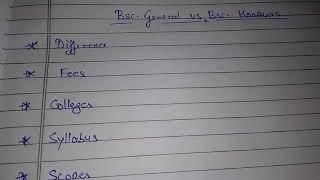 Bsc. General vs. Bsc. Honours
* Difference
* Fees
* Colleges
* Syllabus
* Scopes